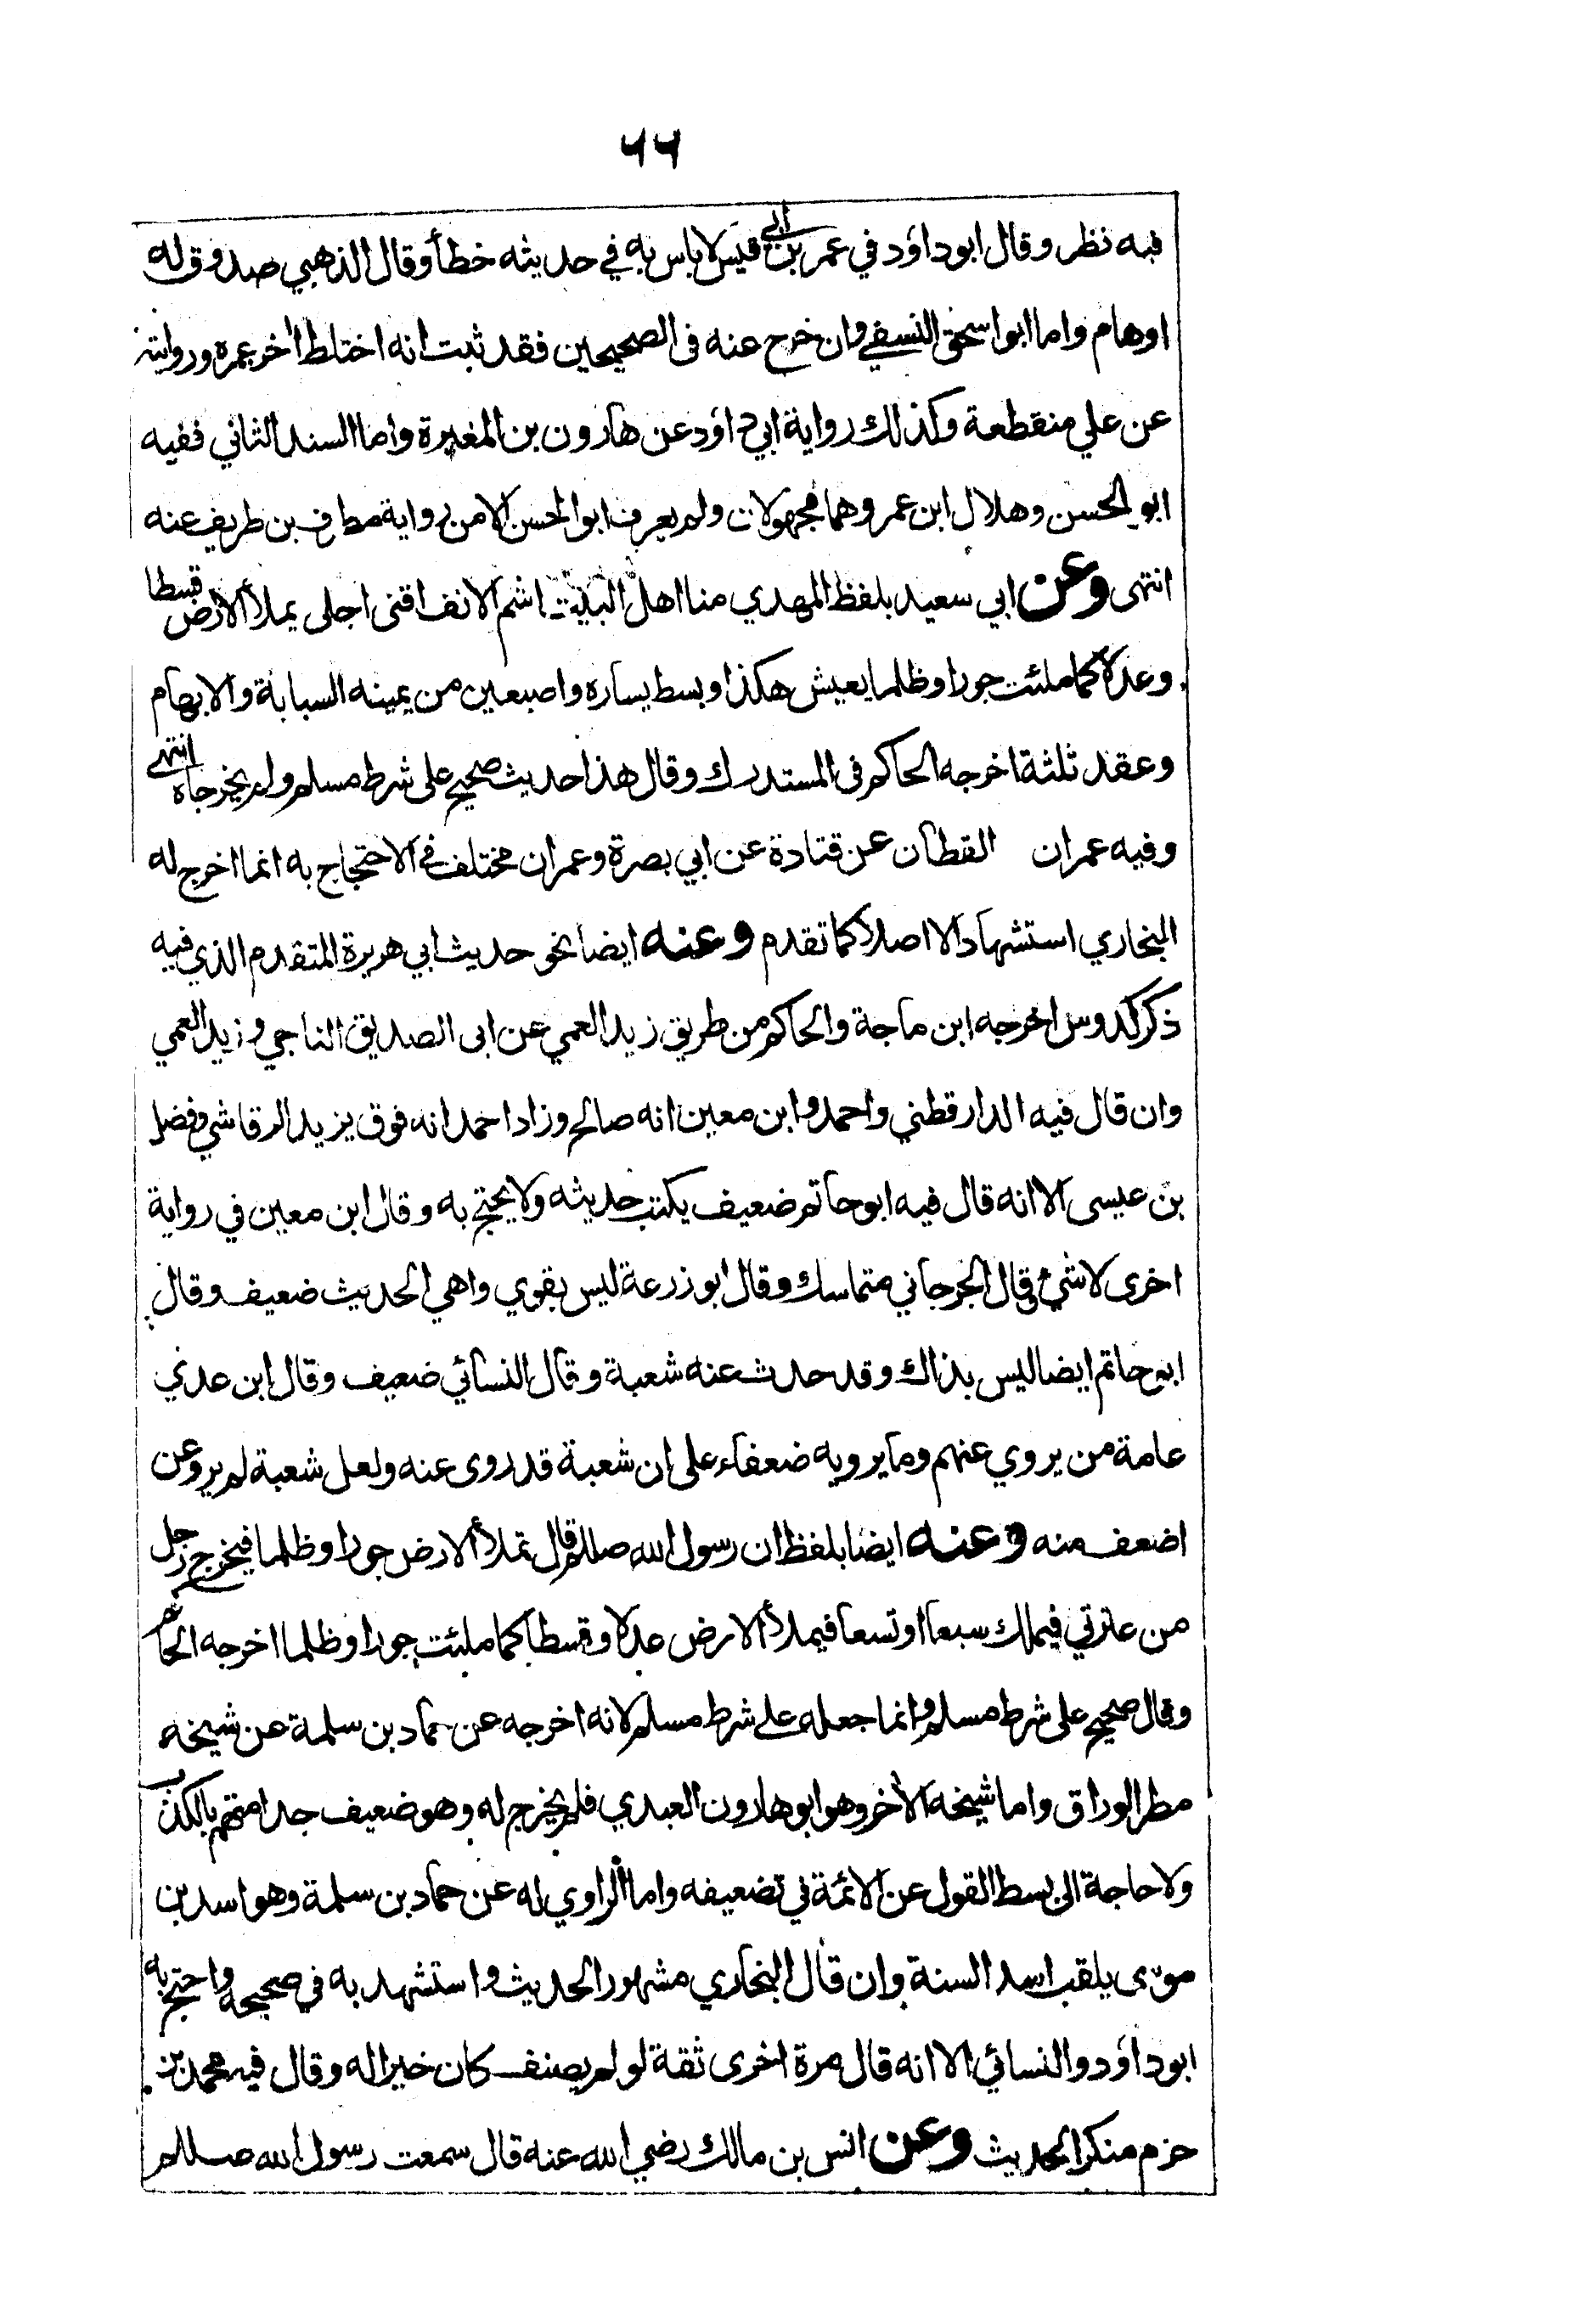 ٦٦
فيه نظر وقال ابوداؤد في عمر بن ابي قيس لا باس به في حديثه خطأ وقال الذهبي صدوق له
اوهام واما ابو اسحق النسفي وان خرج عنه فى الصحيحين فقد ثبت انه اختلط اخر عمره وروايته
عن علي منقطعة وكذلك رواية ابي داؤد عن هارون بن المغيرة واما السند الثاني ففيه
ابو الحسن وهلال ابن عمر وهما مجهولان ولم يعرف ابوالحسن الا من رواية مطرف بن طريف عنه
انتهى وعن ابي سعيد بلفظ المهدي منا اهل البيت اشم الانف اقنى اجلى يملأ الارض قسطا
وعدلا كما ملئت جورا وظلما يعيش هكذا وبسط يساره واصبعين من يمينه السبابة والابهام
وعقد ثلثة اخرجه الحاكم فى المستدرك وقال هذا حديث صحيح على شرط مسلم ولم يخرجاه انتهى
وفيه عمران القطان عن قتادة عن ابي بصرة وعمران مختلف في الاحتجاج به انما اخرج له
البخاري استشهادا لا اصلا كما تقدم وعنه ايضا نحو حديث ابي هريرة المتقدم الذي فيه
ذكر كدوس اخرجه ابن ماجة والحاكم من طريق زيد العمي عن ابى الصديق الناجي وزيد العمي
وان قال فيه الدارقطني واحمد وابن معين انه صالح وزاد احمد انه فوق يزيد الرقاشي وفضل
بن عيسى الا انه قال فيه ابوحاتم ضعيف يكتب حديثه ولا يحتج به وقال ابن معين في رواية
اخرى لا شيء وقال الجرجاني متماسك وقال ابو زرعة ليس بقوي واهي الحديث ضعيف وقال
ابو حاتم ايضا ليس بذاك وقد حدث عنه شعبة وقال النسائي ضعيف وقال ابن عدي
عامة من يروي عنهم وما يرويه ضعفاء على ان شعبة قد روى عنه ولعل شعبة لم يرو عن
اضعف منه وعنه ايضا بلفظ ان رسول الله صللم قال تملأ الارض جورا وظلما فيخرج رجل
من عترتي فيملك سبعا او تسعا فيملأ الارض عدلا وقسطا كما ملئت جورا وظلما اخرجه الحاكم
وقال صحيح على شرط مسلم وانما جعله على شرط مسلم لانه اخرجه عن حماد بن سلمة عن شيخه
مطر الوراق واما شيخه الاخر وهو ابو هارون العبدي فلم يخرج له وهو ضعيف جدا متهم بالكذب
ولا حاجة الى بسط القول عن الائمة في تضعيفه واما الراوي له عن حماد بن سلمة وهو اسد بن
موسى يلقب اسد السنة وان قال البخاري مشهور الحديث واستشهد به في صحيحه واحتج به
ابوداؤد والنسائي الا انه قال مرة اخرى ثقة لو لم يصنف كان خيرا له وقال فيه محمد بن
حزم منكر الحديث وعن انس بن مالك رضي الله عنه قال سمعت رسول الله صللم